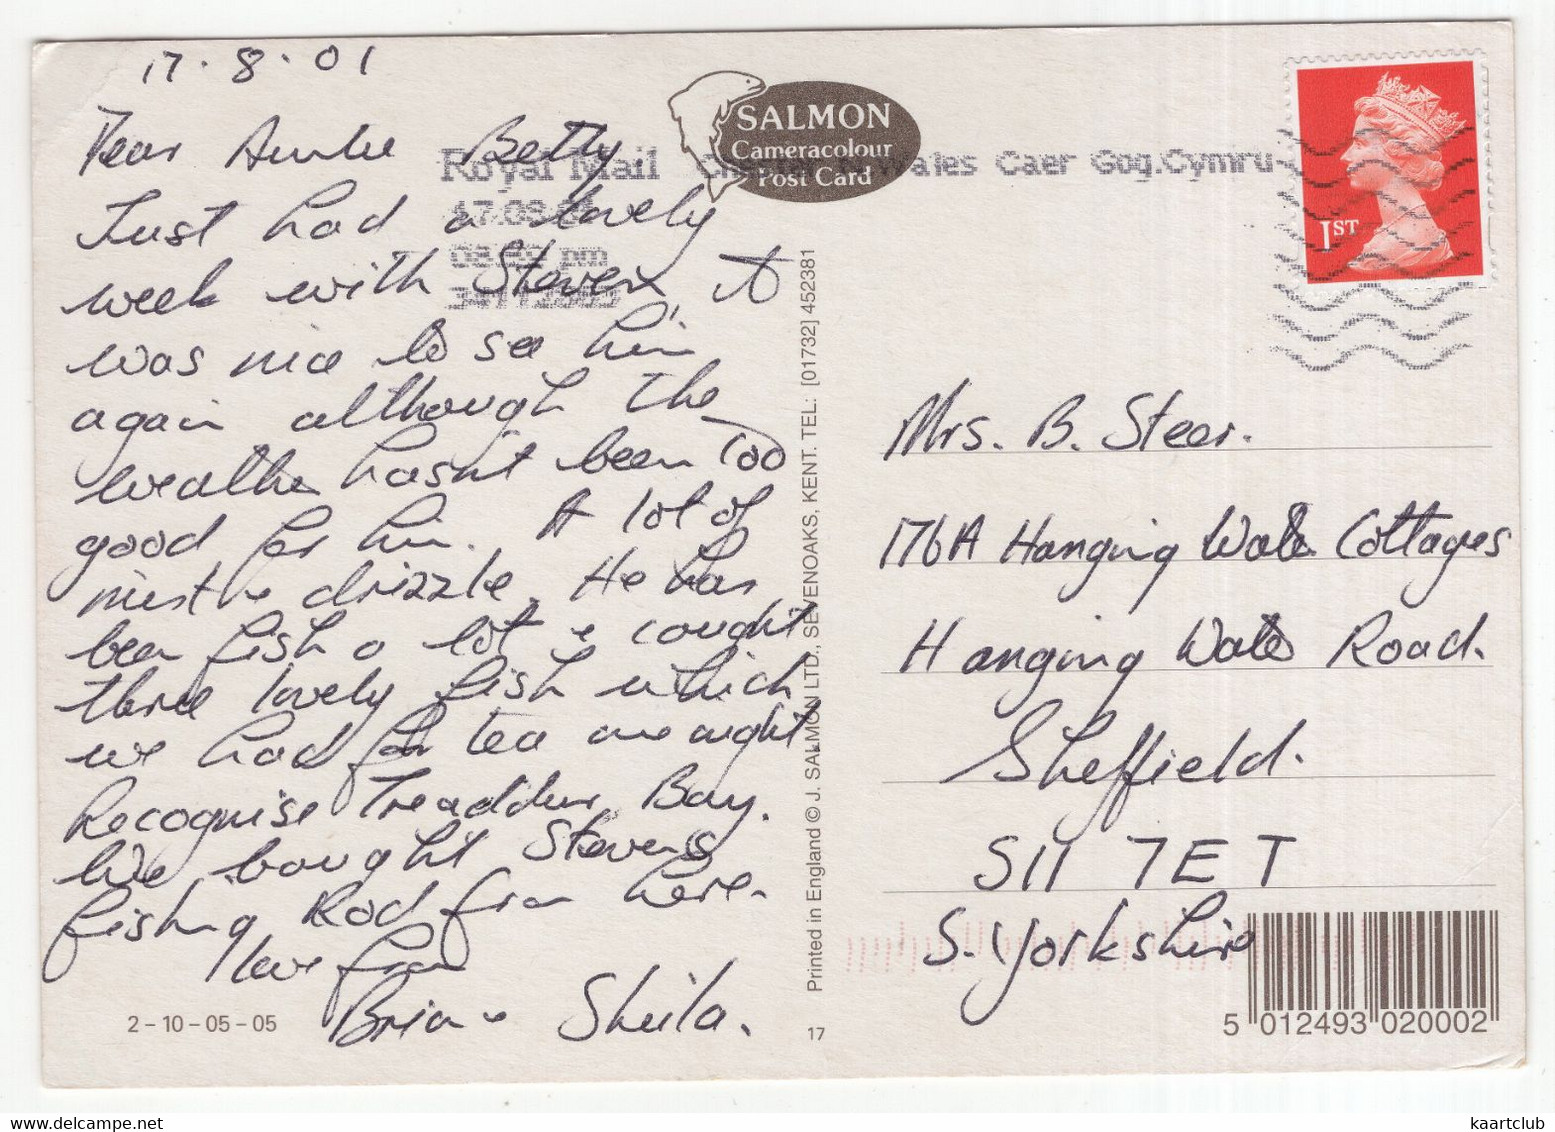 17.8.01
Dear Auntie Betty
Just had a lovely
week with Steven, it
was nice to see him
again although the
weather hasn't been too
good for him. A lot of
mist & drizzle. He has
been fishing a lot & caught
three lovely fish which
we had for tea one night.
Recognise Treaddur Bay.
We bought Stevens
fishing Rod from here.
love from
Brian & Sheila.
2-10-05-05
SALMON
Cameracolour
Post Card
Royal Mail Wales Caer Gog.Cymru
17.08.01
pm
1ST
Printed in England © J. SALMON LTD., SEVENOAKS, KENT. TEL: [01732] 452381
17
Mrs. B. Steer.
176A Hanging Water Cottages
Hanging Water Road.
Sheffield.
S11 7ET
S. Yorkshire
5 012493 020002
www.delcampe.net
kaartclub